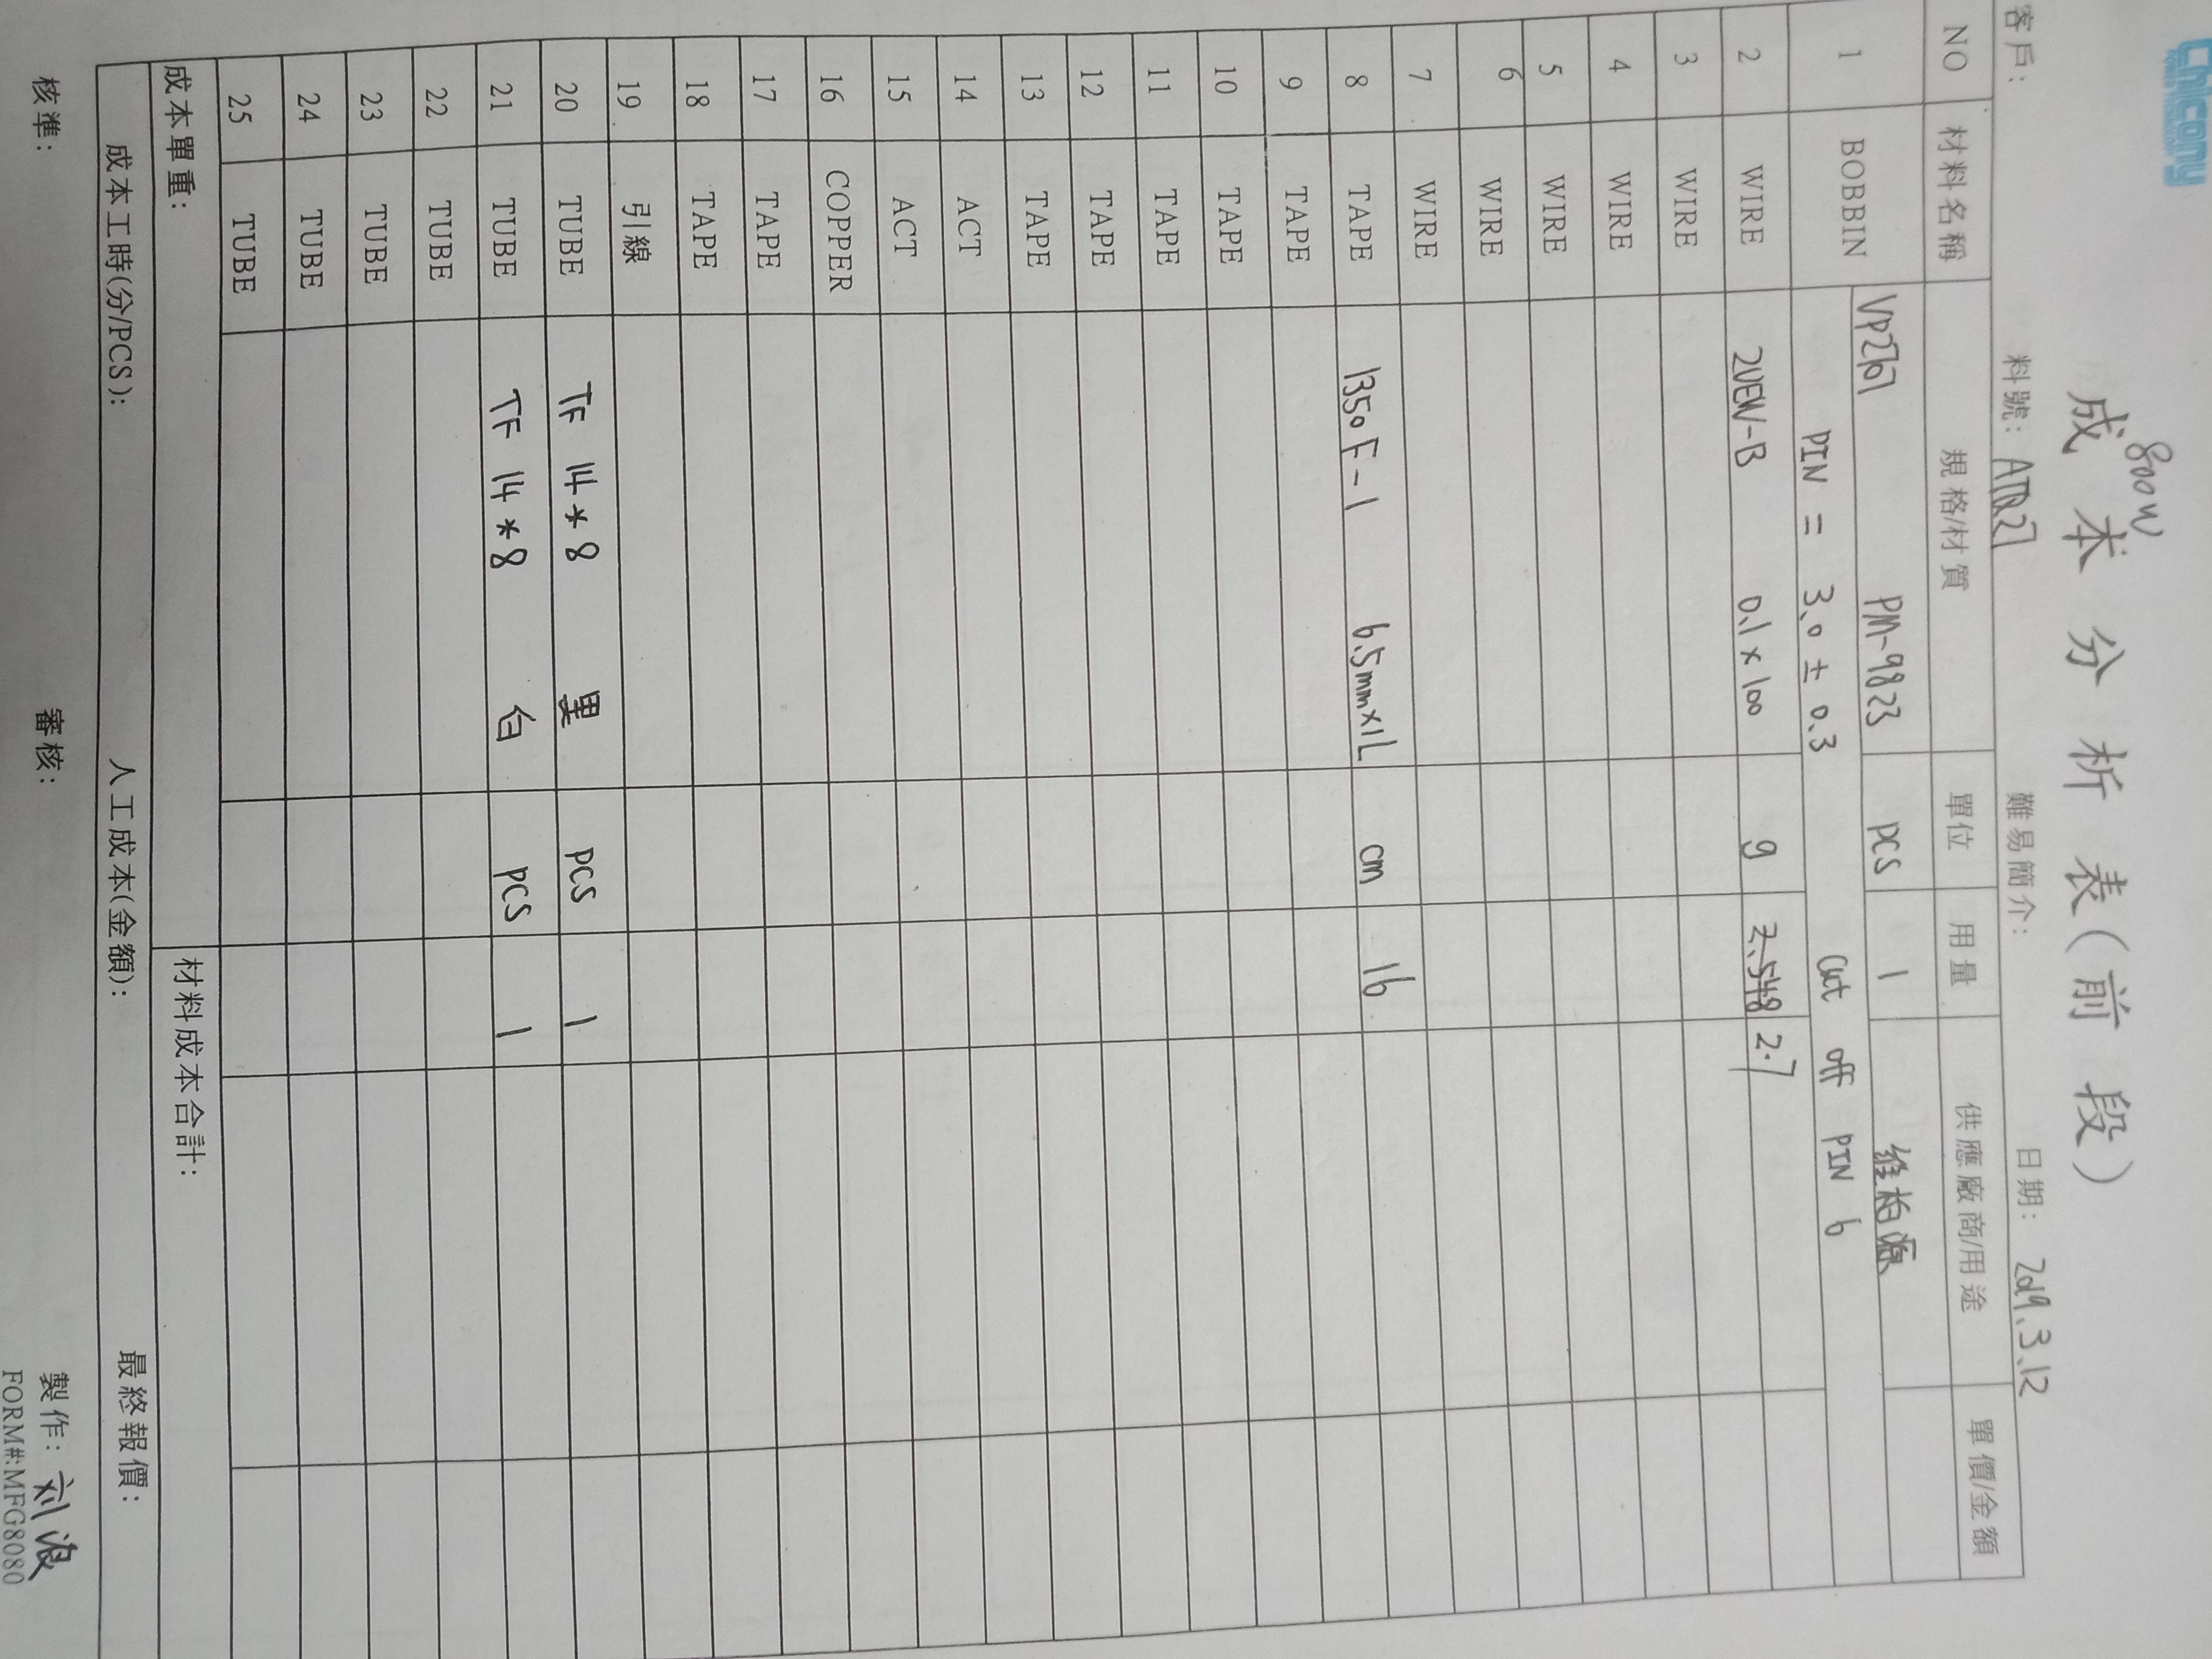 Chicony
800W
成本分析表(前段)
客戶: 料號: ATQ27 難易簡介: 日期: 2019.3.12
NO 材料名稱 規格/材質 單位 用量 供應廠商/用途 單價/金額
1 BOBBIN VP2767 PM-9823 PCS 1 維柏源
PIN = 3.0 ± 0.3 cut off PIN 6
2 WIRE 2UEW-B 0.1×100 g 2.548 2.7
3 WIRE
4 WIRE
5 WIRE
6 WIRE
7 WIRE
8 TAPE 1350F-1 6.5mm×1L cm 16
9 TAPE
10 TAPE
11 TAPE
12 TAPE
13 TAPE
14 ACT
15 ACT
16 COPPER
17 TAPE
18 TAPE
19 引線
20 TUBE TF 14*8 黑 PCS 1
21 TUBE TF 14*8 白 PCS 1
22 TUBE
23 TUBE
24 TUBE
25 TUBE
成本單重: 材料成本合計:
成本工時(分/PCS): 人工成本(金額): 最終報價:
核準: 審核: 製作: 刘浪
FORM#:MFG8080